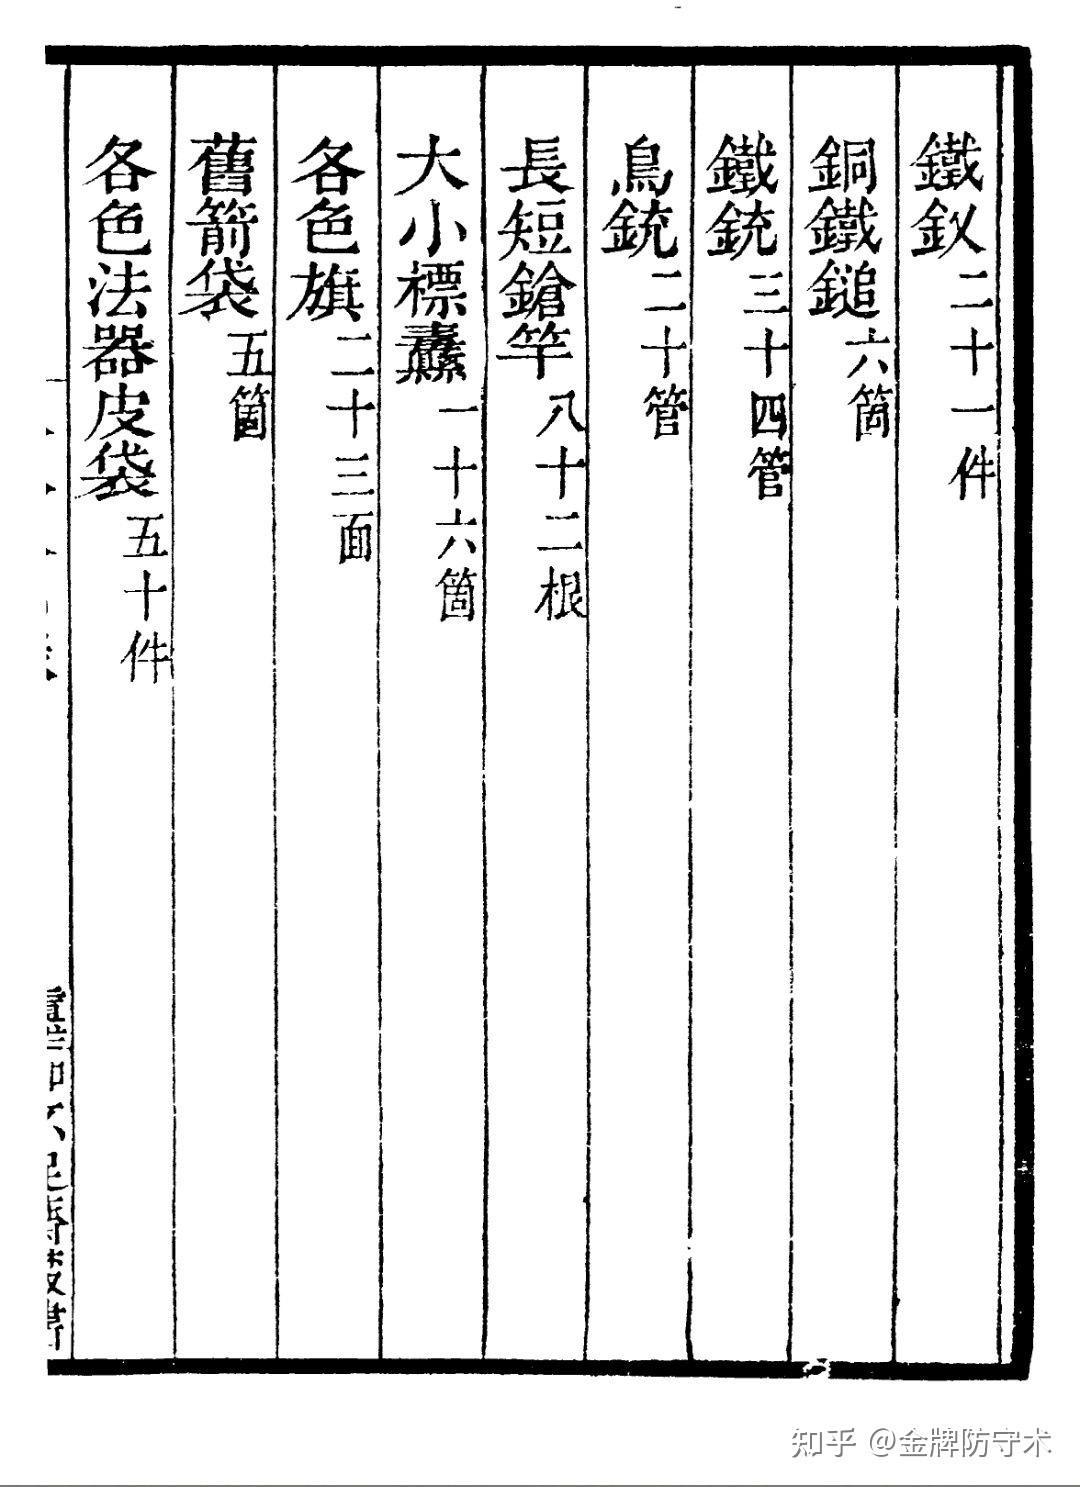 鐵釵二十一件
銅鐵鎚六箇
鐵銃三十四管
鳥銃二十管
長短鎗竿八十二根
大小標纛一十六箇
各色旗二十三面
舊箭袋五箇
各色法器皮袋五十件
知乎 @金牌防守术